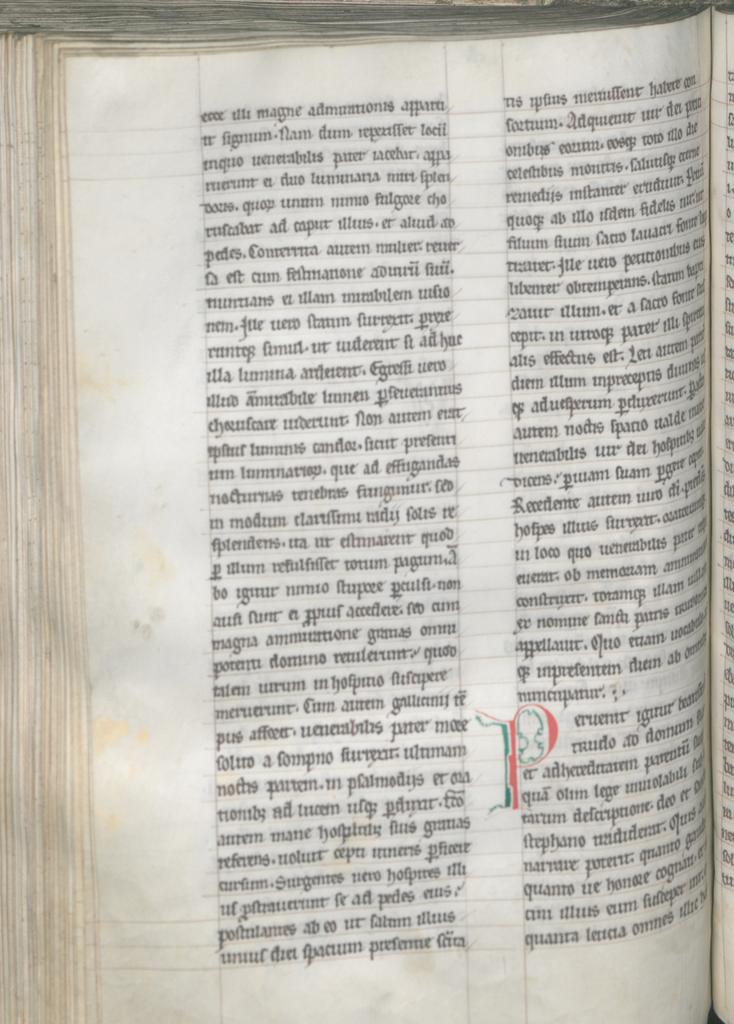 ecce illi magne admirationis apparu
it signum. Nam dum repexisset locū
inquo uenerabilis pater iacebat. appa
ruerunt ei duo luminaria miri splen
doris. quoꝝ unum nimio fulgore cho
ruscabat ad caput illius. et aliud ad
pedes. Conterrita autem mulier. reuer
sa est cum festinatione aduirū suū.
nuntians ei illam mirabilem uisio
nem. Ille uero statim surrexit. ꝑrexe
runtqꝫ simul. ut uiderent si adhuc
illa lumina arderent. Egressi uero
illud āmirabile lumen ꝑseuerantius
choruscare uiderunt. Non autem erat
ipsius luminis candor. sicut presenti
um luminarioꝝ. que ad effugandas
nocturnas tenebras funguntur. sed
in modum clarissimi radij solis re
splendens. ita ut estimarent quod
ꝑ illum refulsisset totum pagum. Ā
bo igitur nimio stupore ꝑculsi. non
ausi sunt ei ꝓpius accedere. sed cum
magna ammiratione gratias omni
potenti domino retulerunt. quod
talem uirum in hospitio suscipere
meruerunt. Cum autem gallicinij tē
pus afforet. uenerabilis pater more
solito a sompno surrexit. ultimam
noctis partem. in psalmodijs et ora
tionibꝫ ad lucem usqꝫ ꝑduxit. fcō
autem mane hospitibꝫ suis gratias
referens. uoluit cepti itineris ꝑficere
cursum. Surgentes uero hospites illi
us ꝓstrauerunt se ad pedes eius.
postulantes ab eo ut saltim illius
unius diei spacium presentie scīta
tis ipsius meruissent habere con
sortium. Adquieuit uir dei peti
onibus eorum. eosqꝫ toto illo die
celestibus monitis. salutisqꝫ eterne
remedijs instanter erudiuit.
quoqꝫ ab illo isdem fidelis uir. ut
filium suum sacro lauacri fonte bap
tizaret. Ille uero petitionibus eius
libenter obtemperans. statim bapti
zauit illum. et a sacro fonte sus
cepit. in utroqꝫ pater illi spiritu
alis effectus est. autem
diem illum inpreceptis diuinis us
qꝫ aduesperum ꝑduxerunt.
autem noctis spacio ualde mane
uenerabilis uir dei hospitibꝫ
dicens. ꝑuiam suam ꝑgere cepit.
Recedente autem uiro dī.
hospes illius surrexit.
in loco quo uenerabilis pater
euerat. ob memoriam ammirationis
construxit. totamqꝫ illam uillam
ex nomine sancti patris trudonis
appellauit. Quo etiam uocabulo us
qꝫ inpresentem diem ab omnibus
nuncupatur.
Peruenit igitur beatus
trudo ad domum suam
et adhereditatem parentū suorum
quā olim lege inuiolabili
tarum descriptione. deo et sancto
stephano tradiderat. Quis
narrare poterit. quanto gaudio
quanto ue honore cognati. et
cini illius eum susceperint.
quanta leticia omnes